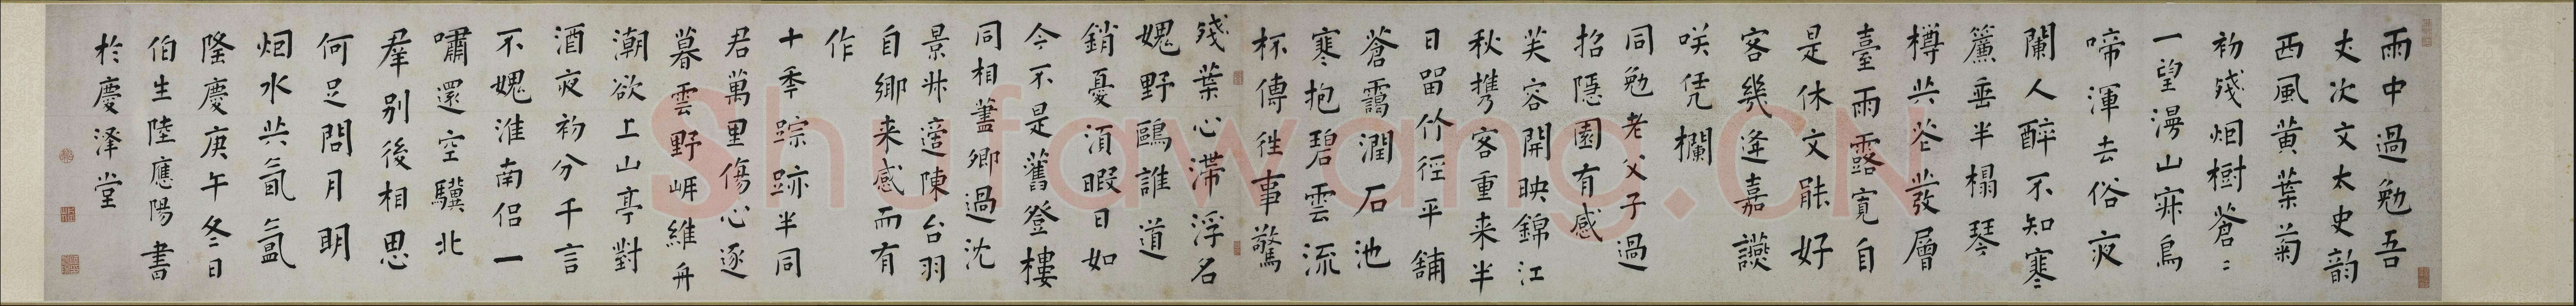 雨中過勉吾
丈次文太史韵
西風黄葉菊
初殘烟樹蒼〻
一望漫山寐鳥
啼渾去俗夜
闌人醉不知寒
簾垂半榻琴
樽共花發層
臺雨露寛自
是休文能好
客幾逢嘉讌
咲凭欄
同勉老父子過
招隱園有感
芙容開映錦江
秋攜客重来半
日畱竹徑平鋪
蒼靄潤石池
寒抱碧雲流
杯傳往事驚
殘葉心滯浮名
媿野鷗誰道
銷憂湏暇日如
今不是舊登樓
同相藎卿過沈
景⽃適陳台羽
自鄉来感而有
作
十年踪跡半同
君萬里傷心逐
暮雲野㟁維舟
潮欲上山亭對
酒夜初分千言
不媿淮南侣一
嘯還空驥北
羣别後相思
何足問月明
烟水共氤氲
隆慶庚午冬日
伯生陸應陽書
於慶澤堂
Shufawang.CN